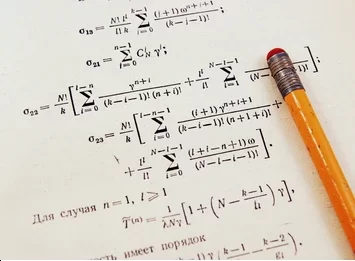 σ₁₃ = N! lⁱ / l! k ∑_{i=0}^{k−1} (i+1) ω^{n+i+1} / (k−i−1)! ;
σ₂₁ = ∑_{i=0}^{n−1} Cⁱ_N γⁱ;
σ₂₂ = N!/k [ ∑_{i=0}^{l−n} γ^{n+i} / (k−i−1)! (n+i)! + lˡ/l! ∑_{i=1}^{N−l−1} / (N−l−i−1)! ];
σ₂₃ = N!/k [ ∑_{i=0}^{l−n−1} (i+1) γ^{n+i+1} / (k−i−1)! (n+1+i)! +
+ lˡ/l! ∑_{i=0}^{N−l−1} (l+i−n+1) ω / (N−l−i−1)! ].
Для случая n = 1, l ⩾ 1
T̃⁽ⁿ⁾ = 1/λNγ [ 1 + ( N − k−1/l ) γ ],
имеет порядок
γ ( k−1 − k−2